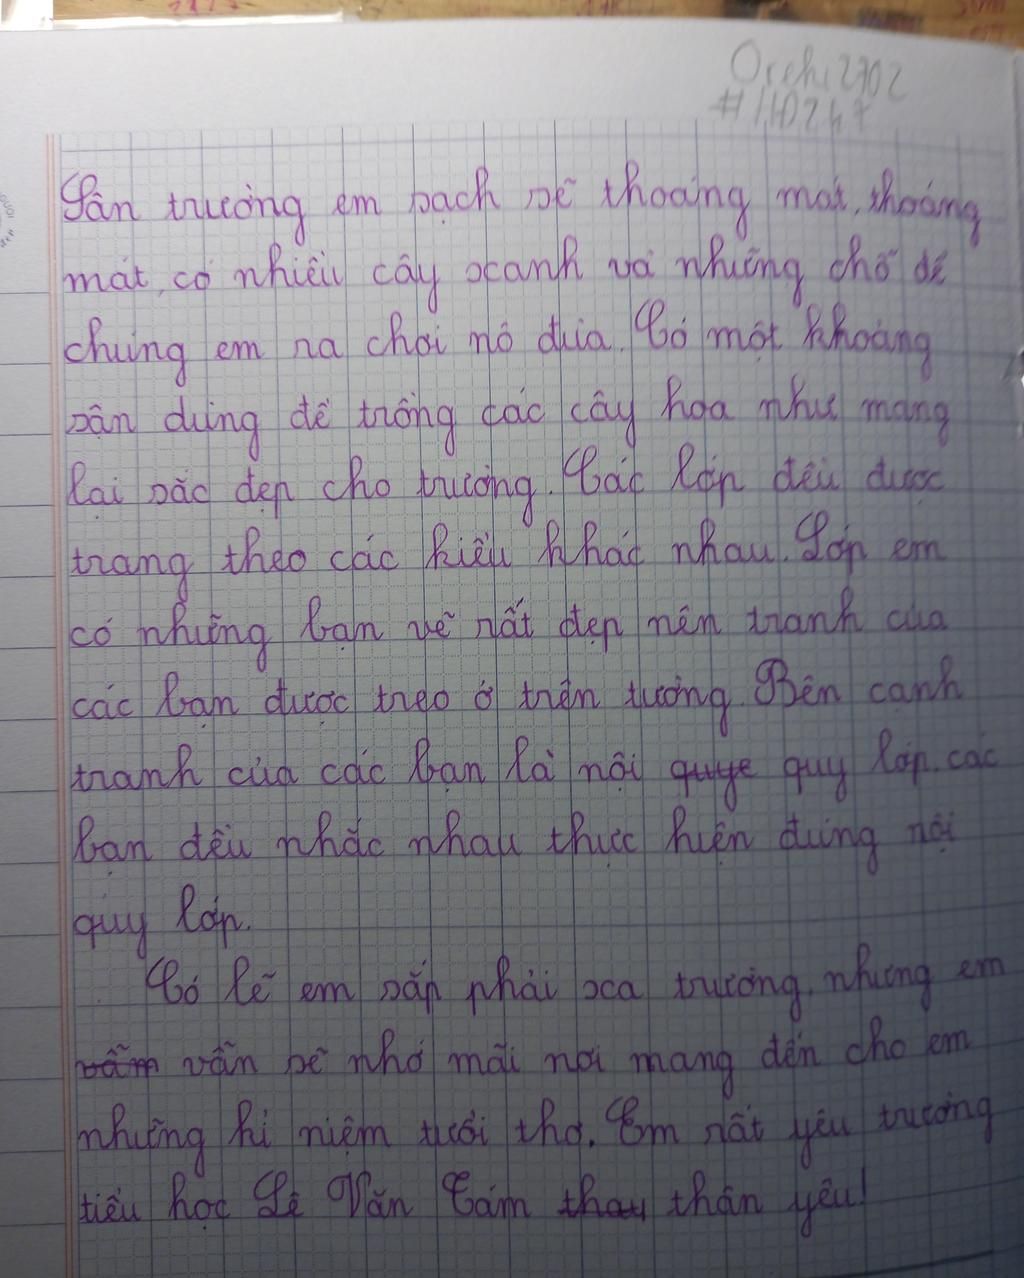 Orchi2702
#110247
Sân trường em sạch sẽ thoáng mát, thoáng
mát, có nhiều cây xanh và những chỗ để
chúng em ra chơi nô đùa. Có một khoảng
sân dùng để trồng các cây hoa như mang
lại sắc đẹp cho trường. Các lớp đều được
trang theo các kiểu khác nhau. Lớp em
có những bạn vẽ rất đẹp nên tranh của
các bạn được treo ở trên tường. Bên cạnh
tranh của các bạn là nội quye quy lớp. các
bạn đều nhắc nhau thực hiện đúng nội
quy lớp.
Có lẽ em sắp phải xa trường, nhưng em
vẫm vẫn sẽ nhớ mãi nơi mang đến cho em
những kỉ niệm tuổi thơ. Em rất yêu trường
tiểu học Lê Văn Tám thay thân yêu!